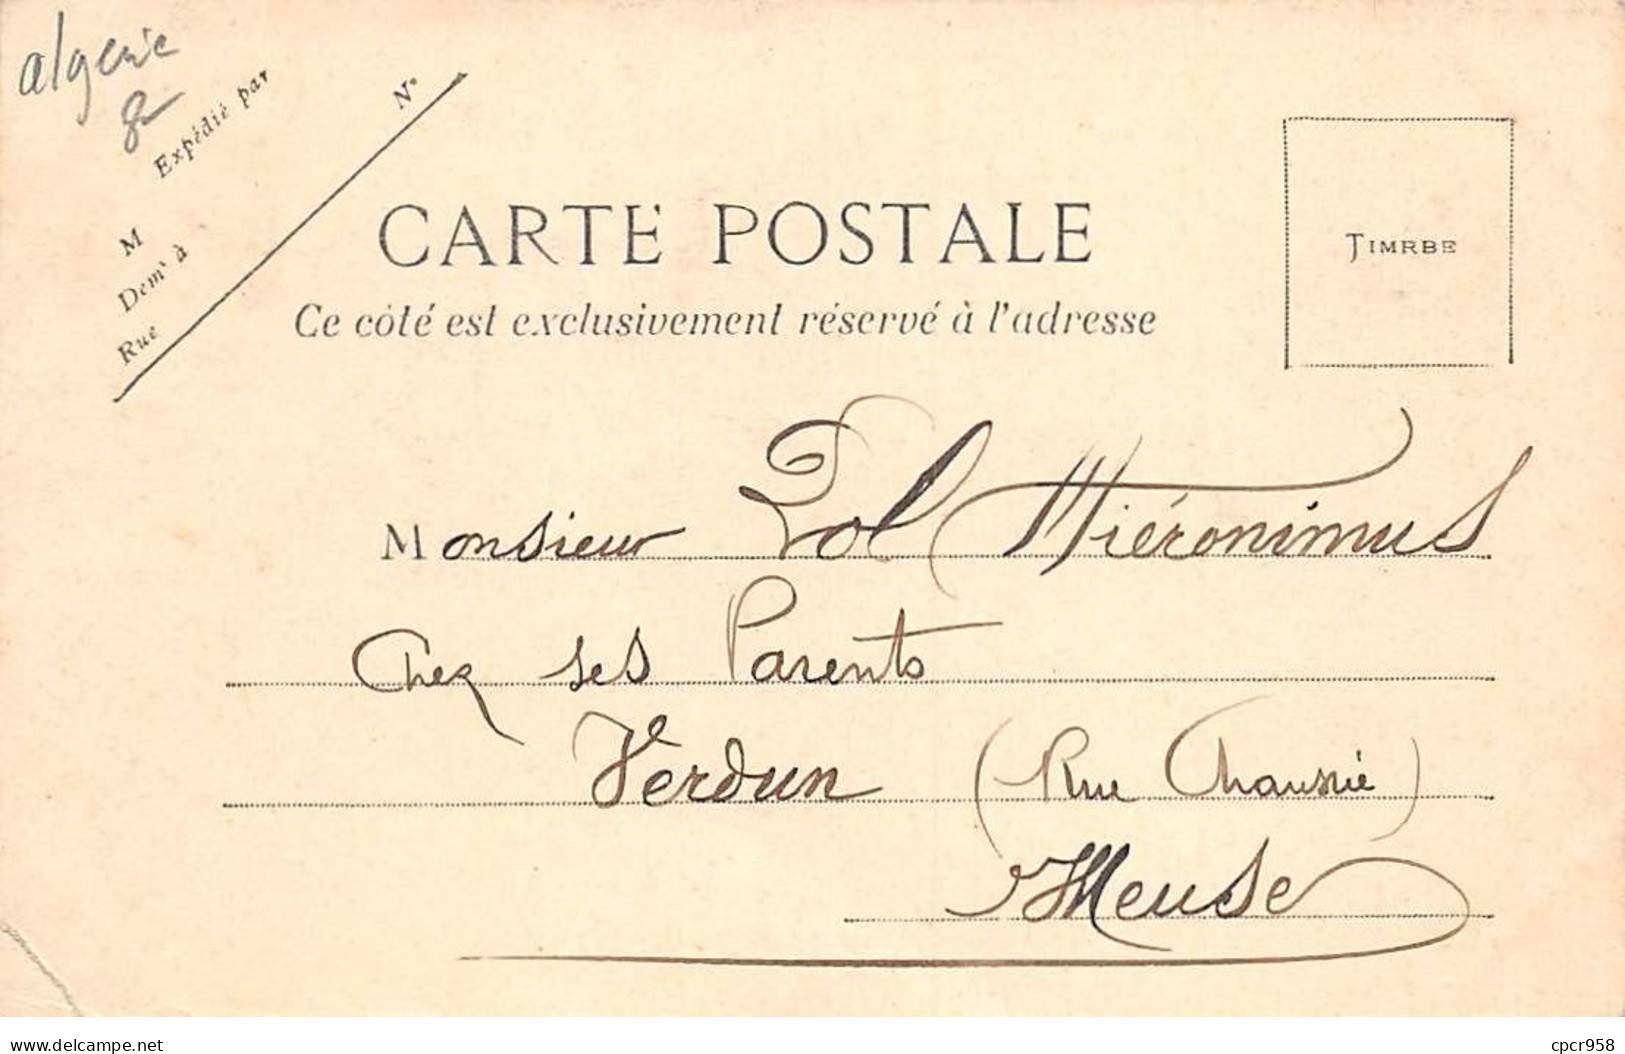 algerie
8
Expédié par
N°
M
Demt à
Rue
CARTE POSTALE
Ce côté est exclusivement réservé à l'adresse
TIMRBE
Monsieur Lol Hiéronimus
Chez ses Parents
Verdun (Rue Chaussée)
Meuse
www.delcampe.net
cpcr958